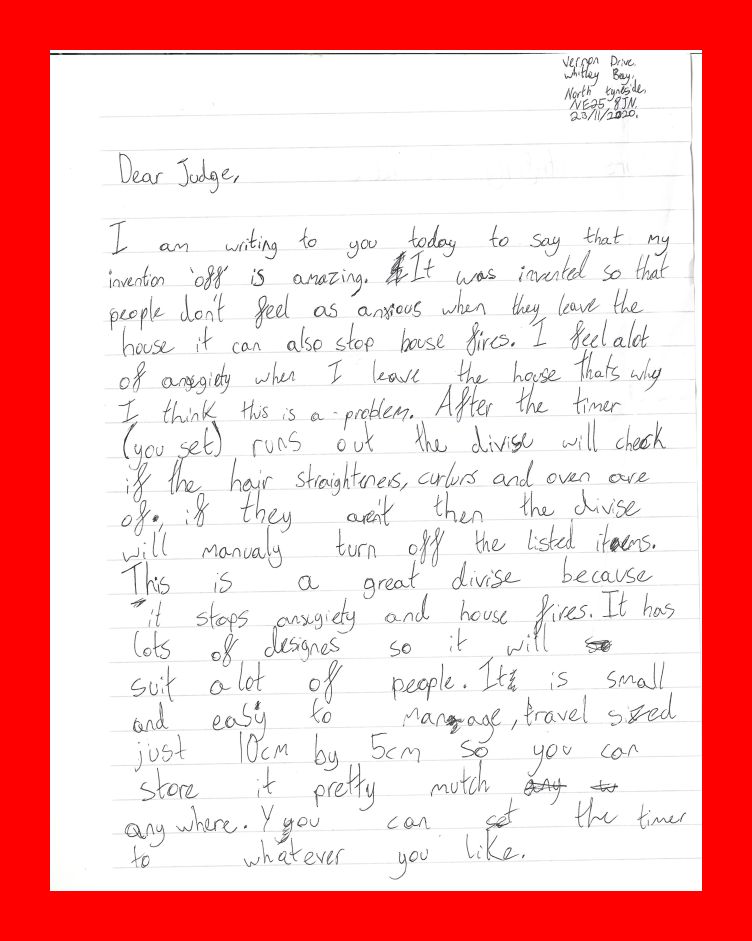 Vernon Drive.
Whitley Bay,
North tyneside,
NE25 8JN.
23/11/2020.
Dear Judge,
I am writing to you today to say that my
invention 'off' is amazing. It was invented so that
people don't feel as anxious when they leave the
house it can also stop house fires. I feel alot
of anxgiety when I leave the house thats why
I think this is a problem. After the timer
(you set) runs out the divise will check
if the hair straighteners, curlurs and oven are
of, if they arent then the divise
will manualy turn off the listed items.
This is a great divise because
it stops anxgiety and house fires. It has
lots of designes so it will
suit a lot of people. It is small
and easy to manage, travel sized
just 10cm by 5cm so you can
store it pretty mutch
any where. You can set the timer
to whatever you like.